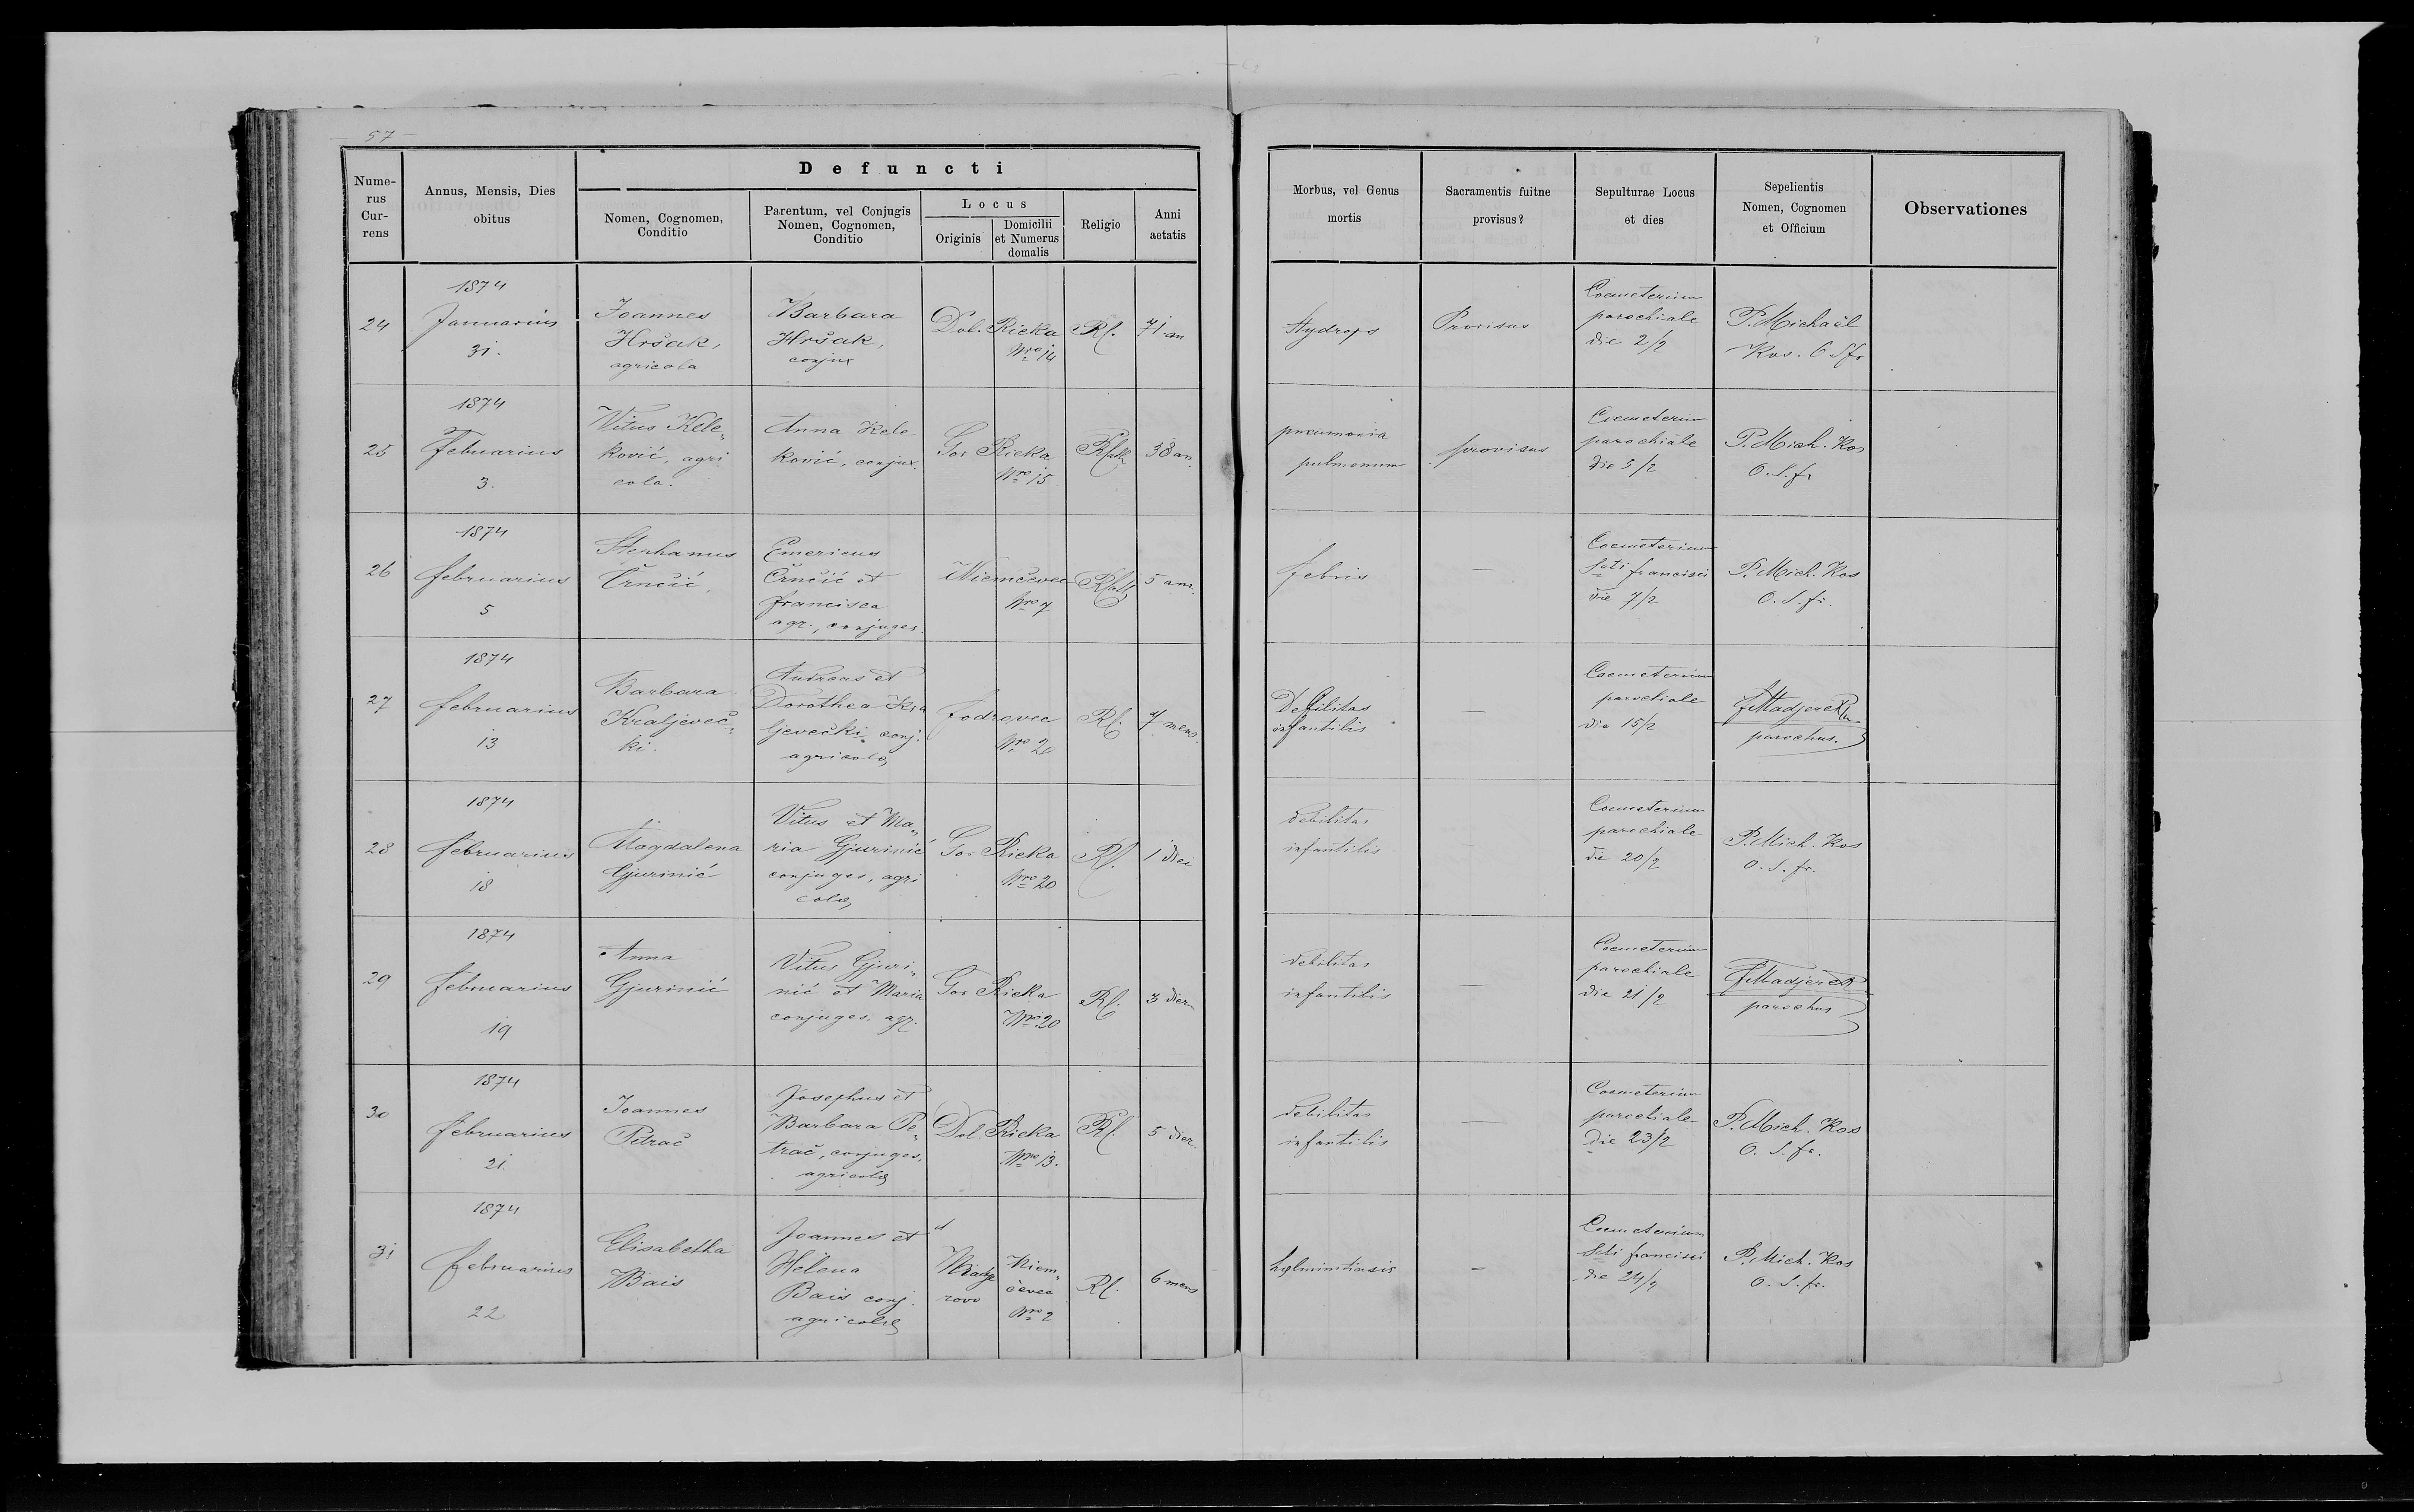 57
Defuncti
Nume-
rus
Cur-
rens
Annus, Mensis, Dies
obitus
Nomen, Cognomen,
Conditio
Parentum, vel Conjugis
Nomen, Cognomen,
Conditio
Locus
Originis
Domicilii
et Numerus
domalis
Religio
Anni
aetatis
Morbus, vel Genus
mortis
Sacramentis fuitne
provisus?
Sepulturae Locus
et dies
Sepelientis
Nomen, Cognomen
et Officium
Observationes
24
1874
Januarius
31.
Joannes
Hršak,
agricola
Barbara
Hršak,
conjux
Dol. Rieka
Nro 14
Rl.
71 an
Hydrops
Provisus
Coemeterium
parochiale
die 2/2
P. Michaël
Kos. O S fr
25
1874
Febuarius
3.
Vitus Kele„
ković, agri
cola.
Anna Kele
ković, conjux.
Gor Rieka
Nro 15
38 an.
pneumonia
pulmonum
provisus
Coemeterium
parochiale
die 5/2
P. Mich. Kos
O. S. fr
26
1874
februarius
5
Stephanus
Črnčić,
Emericus
Črnčić et
francisca
agr., conjuges.
Niemčevec
Nro 7
5 ann.
febris
—
Coemeterium
Scti francisci
die 7/2
P. Mich. Kos
O. S. fr.
27
1874
februarius
13
Barbara
Kraljeveč„
ki.
Andreas et
Dorothea Kra
ljevečki conj.
agricolæ
fodrovec
Nro 20
Rl.
7 mens.
Debilitas
infantilis
—
Coemeterium
parochiale
die 15/2
parochus.
28
1874
februarius
18
Magdalena
Gjurinić
Vitus et Ma„
ria Gjurinić
conjuges, agri
colæ
Gor Rieka
Nro 20
Rl.
1 diei
debilitas
infantilis
—
Coemeterium
parochiale
die 20/2
P. Mich. Kos
O. S. fr.
29
1874
februarius
19
Anna
Gjurinić
Vitus Gjuri„
nić et Maria
conjuges, agr.
Gor Rieka
Nro 20
Rl.
3 dier
debilitas
infantilis
—
Coemeterium
parochiale
die 21/2
parochus
30
1874
februarius
21.
Joannes
Petrač
Josephus et
Barbara Pe„
trač, conjuges,
agricolæ
Dol. Rieka
Nro 13.
Rl.
5 dier.
debilitas
infantilis
—
Coemeterium
parochiale
die 23/2
P. Mich. Kos
O. S. fr.
31
1874
februarius
22
Elisabetha
Bais
Joannes et
Helena
Bais conj.
agricolæ
rovo
Niem„
čevec
Nro 2
Rl.
6 mens
helminthiasis
—
Coemeterium
Scti francisci
die 24/2
P. Mich. Kos
O. S. fr.